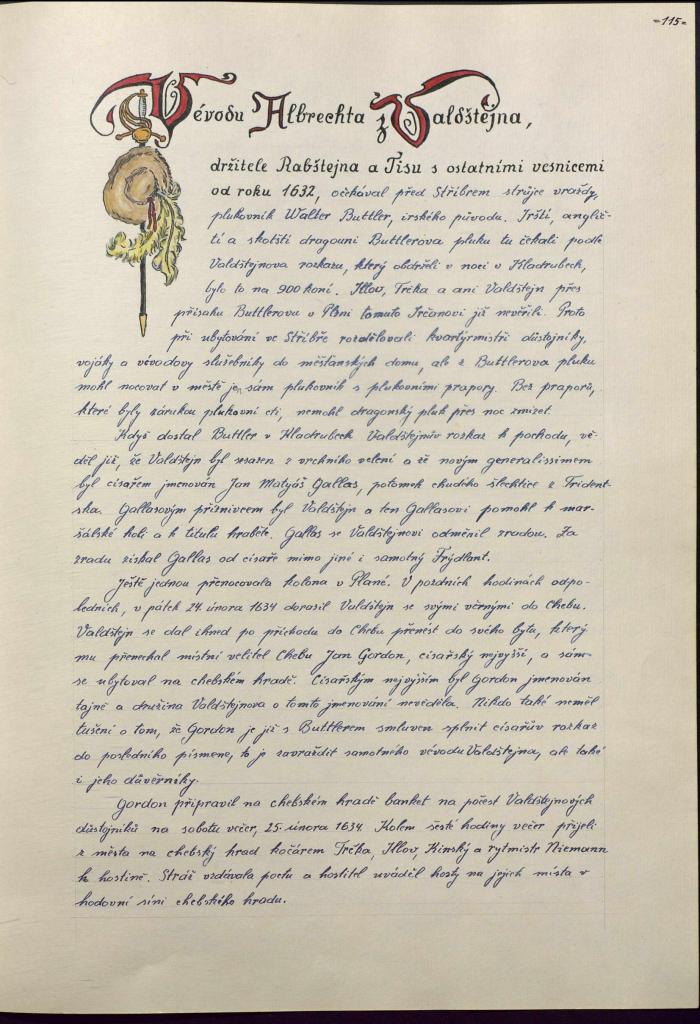 -115-
Vévodu Albrechta z Valdštejna,
držitele Rabštejna a Tisu s ostatními vesnicemi
od roku 1632, očekával před Stříbrem strůjce vraždy,
plukovník Walter Buttler, irského původu. Irští, anglič-
tí a skotští dragouni Buttlerova pluku tu čekali podle
Valdštejnova rozkazu, který obdrželi v noci v Kladrubech,
bylo to na 900 koní. Illov, Trčka a ani Valdštejn přes
přísahu Buttlerovu v Plzni tomuto Irčanovi již nevěřili. Proto
při ubytování ve Stříbře rozdělovali kvartýrmistři důstojníky,
vojáky a vévodovy služebníky do měšťanských domů, ale z Buttlerova pluku
mohl nocovat v městě jen sám plukovník s plukovními prapory. Bez praporů,
které byly zárukou plukovní cti, nemohl dragonský pluk přes noc zmizet.
Když dostal Buttler v Kladrubech Valdštejnův rozkaz k pochodu, vě-
děl již, že Valdštejn byl sesazen z vrchního velení a že novým generalissimem
byl císařem jmenován Jan Matyáš Gallas, potomek chudého šlechtice z Trident-
ska. Gallasovým příznivcem byl Valdštejn a ten Gallasovi pomohl k mar-
šálské holi a k titulu hraběte. Gallas se Valdštejnovi odměnil zradou. Za
zradu získal Gallas od císaře mimo jiné i samotný Frýdlant.
Ještě jednou přenocovala kolona v Plané. V pozdních hodinách odpo-
ledních, v pátek 24. února 1634 dorazil Valdštejn se svými věrnými do Chebu.
Valdštejn se dal ihned po příchodu do Chebu přenést do svého bytu, který
mu přenechal místní velitel Chebu Jan Gordon, císařský nejvyšší, a sám
se ubytoval na chebském hradě. Císařským nejvyšším byl Gordon jmenován
tajně a družina Valdštejnova o tomto jmenování nevěděla. Nikdo také neměl
tušení o tom, že Gordon je již s Buttlerem smluven splnit císařův rozkaz
do posledního písmene, to je zavraždit samotného vévodu Valdštejna, ale také
i jeho důvěrníky.
Gordon připravil na chebském hradě banket na počest Valdštejnových
důstojníků na sobotu večer, 25. února 1634. Kolem šesté hodiny večer přijeli
z města na chebský hrad kočárem Trčka, Illov, Kinský a rytmistr Niemann
k hostině. Stráž vzdávala poctu a hostitel uváděl hosty na jejich místa v
hodovní síni chebského hradu.